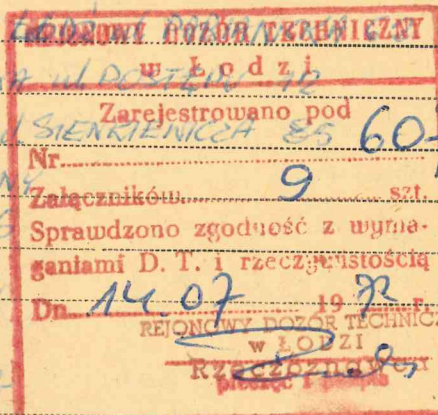 REJONOWY DOZÓR TECHNICZNY
w Łodzi
ul POSTĘPU 12
Zarejestrowano pod
SIENKIEWICZA 85 60-
Nr
Załączników 9 szt.
Sprawdzono zgodność z wyma-
ganiami D. T. i rzeczywistością
Dn. 14.07 1972 r.
REJONOWY DOZÓR TECHNICZ
W ŁODZI
Rzeczoznawca
pieczęć i podpis